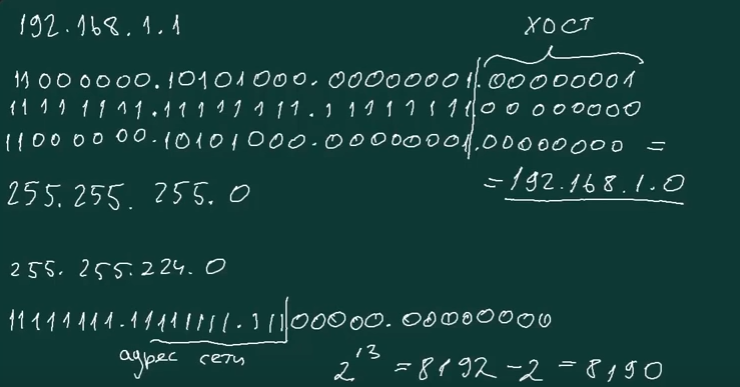 192.168.1.1
ХОСТ
11000000.10101000.00000001.00000001
11111111.11111111.11111111.00000000
11000000.10101000.00000001.00000000 =
= 192.168.1.0
255.255.255.0
255.255.224.0
11111111.11111111.11100000.00000000
адрес сети
2¹³ = 8192 - 2 = 8190